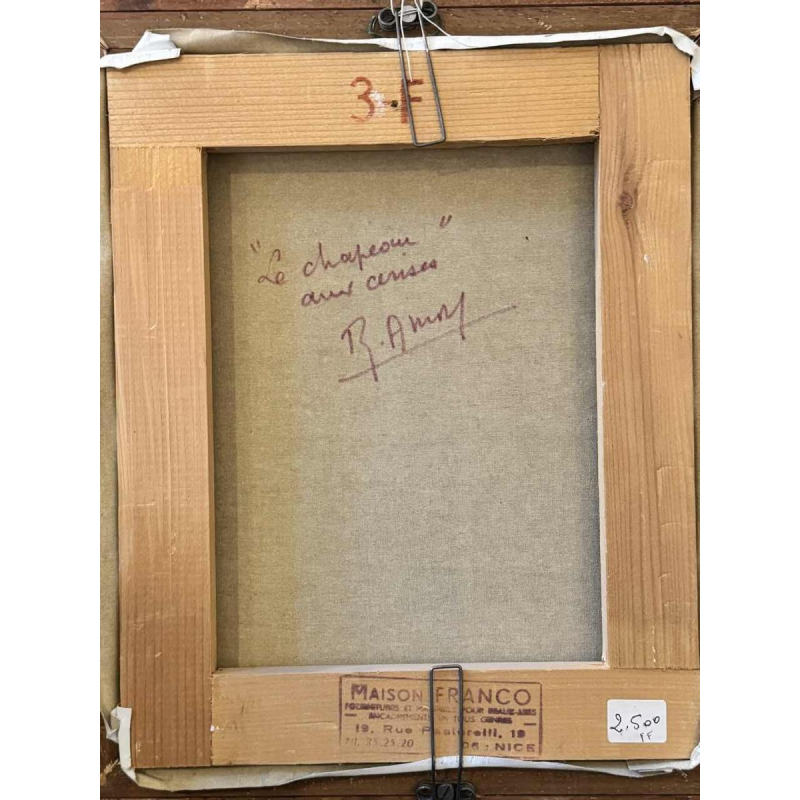 3 F
"Le chapeau"
aux cerises
R. Amory
MAISON FRANCO
FOURNITURES ET MATERIEL POUR BEAUX-ARTS
ENCADREMENTS EN TOUS GENRES
19, Rue Pastorelli, 19
Tél. 85.25.20 06 - NICE
2.500
FF